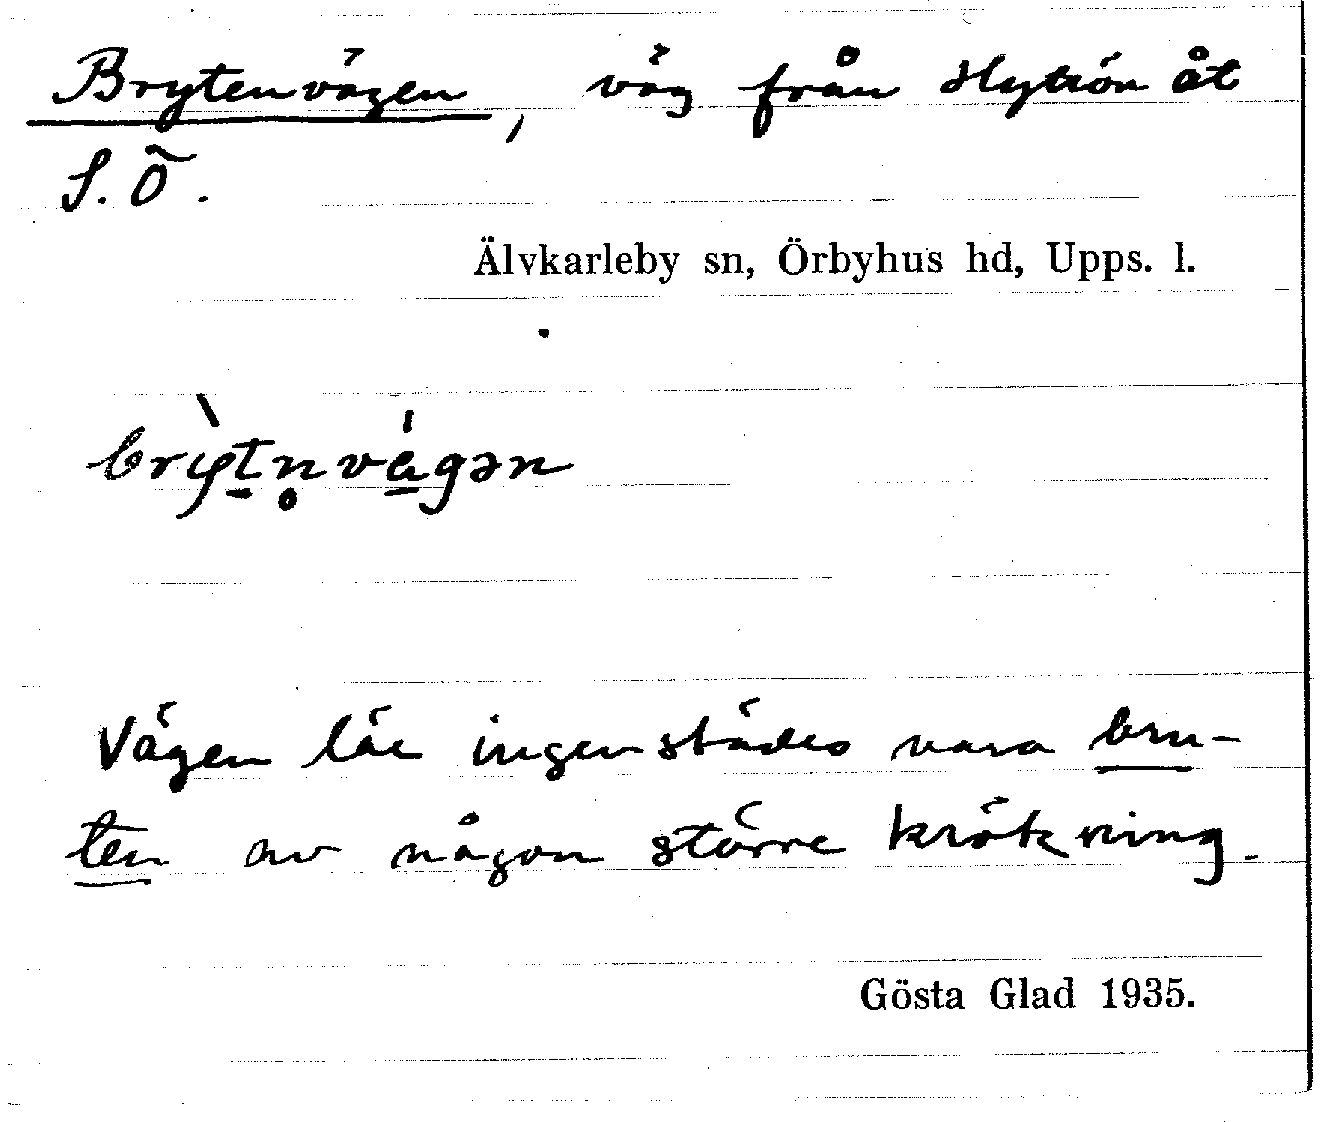 Brytenvägen, väg från Hyttön åt
S.Ö.
Älvkarleby sn, Örbyhus hd, Upps. l.
brỳt̠n̥vá̠gən
Vägen lär ingenstädes vara bru-
ten av någon större krökning.
Gösta Glad 1935.